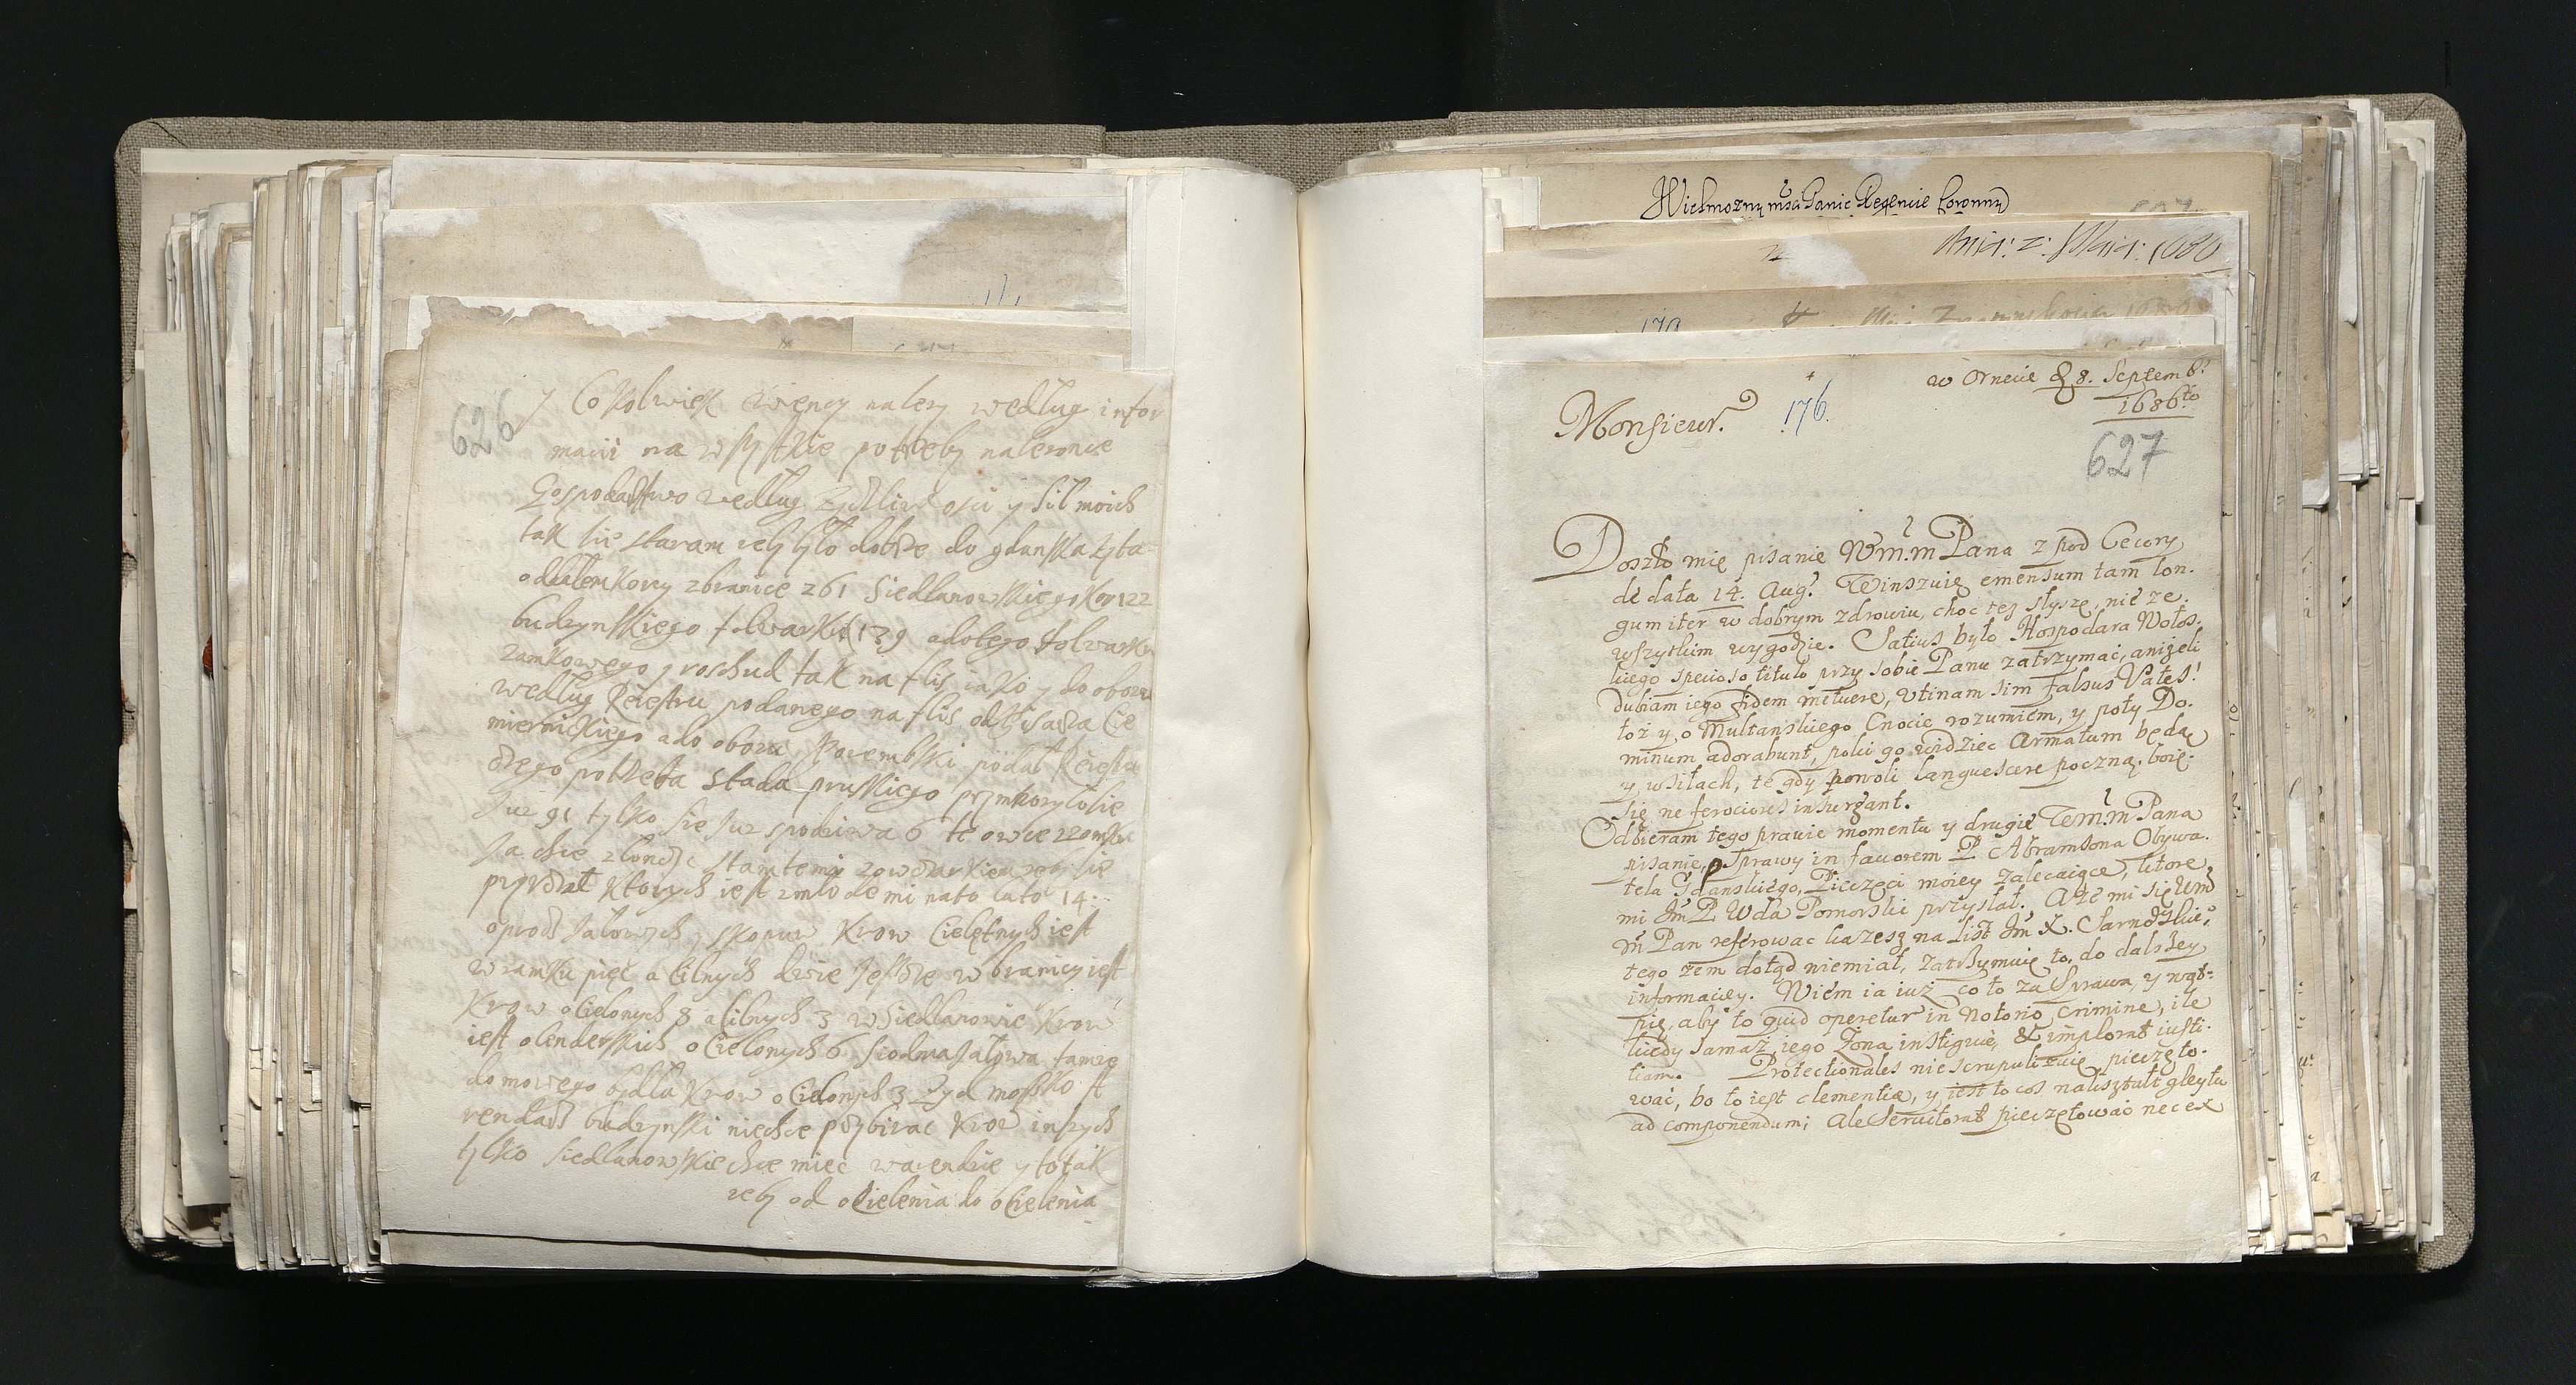 626
y Cokolwiek wiency nalezy według infor
macii na wszystkie potrzeby nalezonce
Gospodarstwo według zyczliwosci y sił moich
tak sie staram zeby było dobrze do gdanska zyta
zbranice 261 Siedlanowskiego kor 122
budzynskiego folwarku 139 adolego folwarku
zamkowego y roschud tak na flis iako y do obozu
według Reiestru podanego na flis od Pisarza Cie
miernickiego a do obozu Porembski podał Reiestr
czego potrzeba stada pruskiego
Juz 91 tylko sie Juz spodziwa 6 te owce
Ja chce
przydał ktorych iest zmłodemi nato lato 14
oprocz Jałowych y skopuw Krow Cielętnych iest
w zamku pięć a Cilnych dwie Jeszcze w branicy iest
Krow ocielonych 8 a Cilnych 3 w Siedlanowie Krow
iest olenderskich ocielonych 6 siodma Jałowa tamze
domowego bydła Krow ocielonych 3 Zyd moszko A
rendarz budzynski niechce przybirac Krow inszych
tylko Siedlanowskie chce miec warendzie y to tak
zeby od ocielenia do ocielenia
Wielmozny mści Panie Regencie Koronny
1686
170
w Ornecie d 8. Septemb:
1686to
Monsieur.
176.
627
Doszło mię pisanie Wm. m Pana z pod Cecory
de data 14. Aug. Winszuię emensum tam lon.
gum iter w dobrym zdrowiu, choc też słyszę, nie ze
wszytkim wygodzie. Satius było Hospodara Wołos.
kiego specioso titulo przy sobie Panu zatrzymać, aniżeli
dubiam iego fidem metuere, utinam sim falsus Vates!
toż y o Multanskiego Cnocie rozumiem, y poty Do.
minum adorabunt, poki go widziec Armatum będą
y w siłach, te gdy powoli languescere poczną, boię
się ne ferociores insurgant.
Odbieram tego prawie momentu y drugie Wm. m Pana
pisanie, Sprawy in fauorem P. Abramsona Obywa.
tela Gdanskiego, Pieczęci moiey zalecaiące, ktore
mi Jm P. Wda Pomorski przysłał. A że mi się Wm
m Pan referowac każesz na list Jm X. Sarnowskie:
tego żem dotąd niemiał, zatrzymuię to, do dalszey
informaciey. Wiem ia iuż co to za Sprawa, y wąt:
pię, aby to quid operetur in Notorio Crimine, ile
kiedy samaż iego Zona instiguie, & implorat iusti.
tiam. Protectionales nie scrupulizuię pieczęto.
wać, bo to iest clementiae, y iest to cos nakształt gleytu
ad componendum; Ale Seruitorat pieczętować nec ex